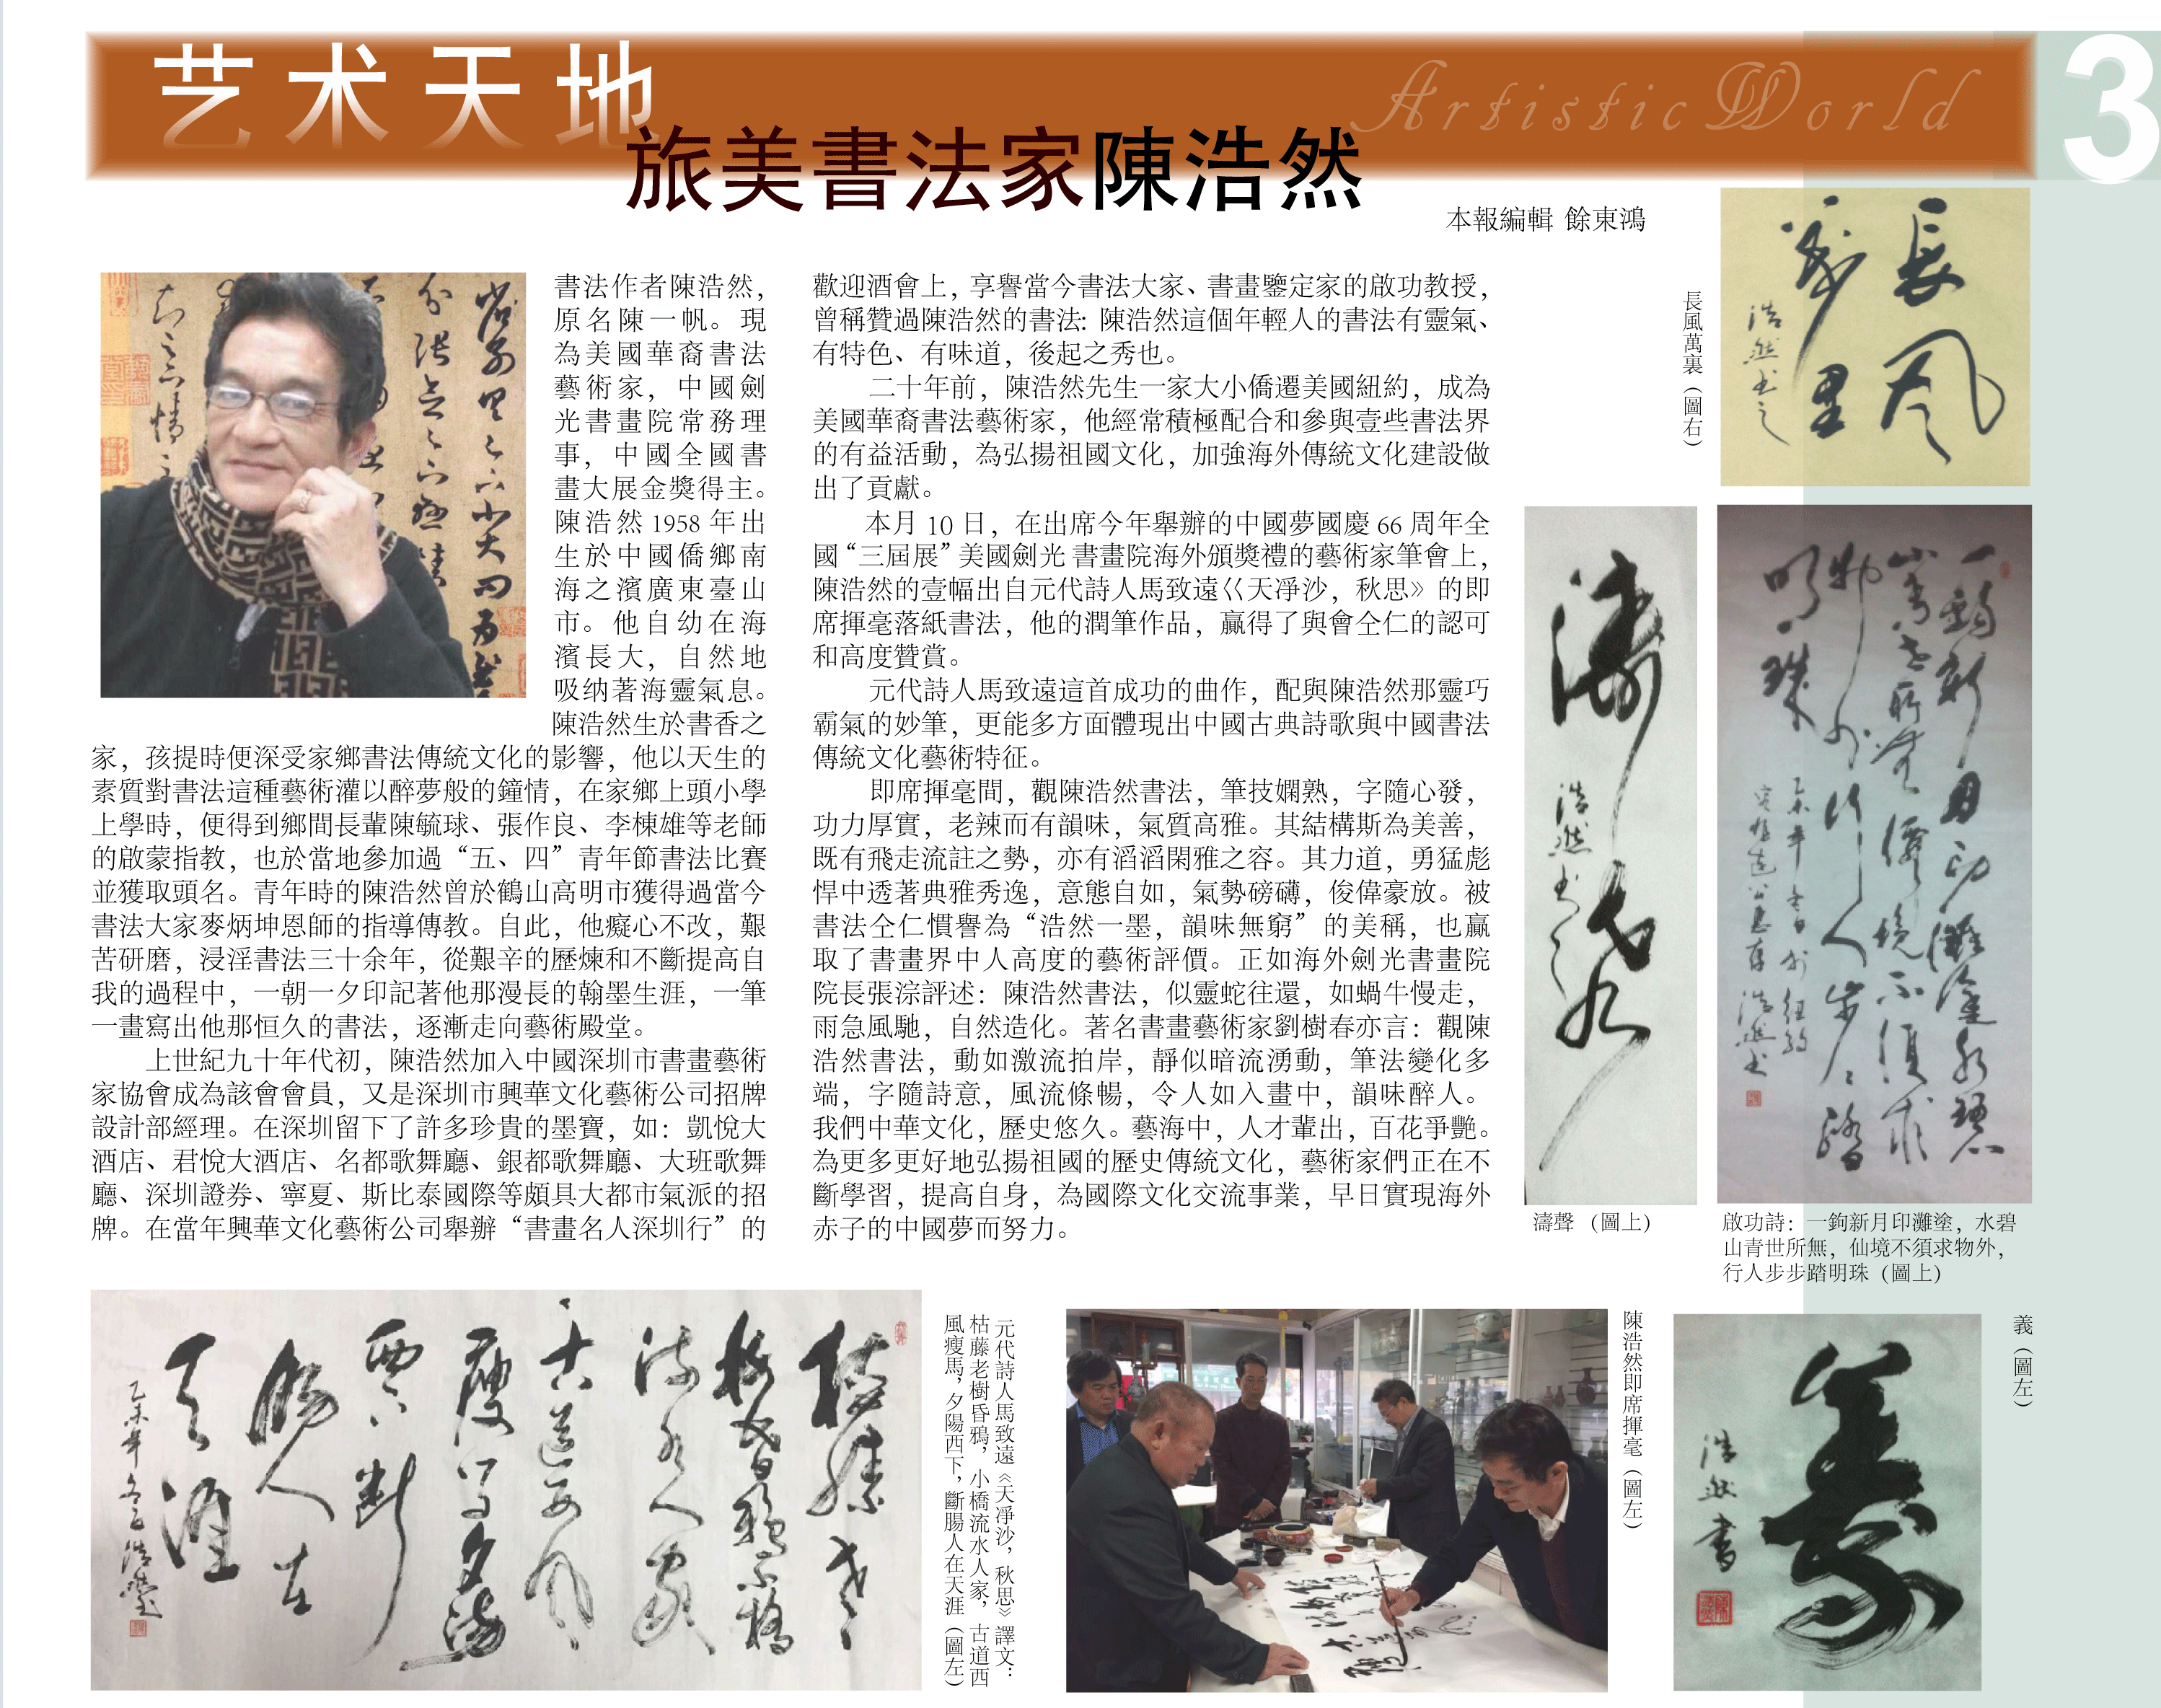 艺术天地
Artistic World
3
旅美書法家陳浩然
本報編輯 餘東鴻
書法作者陳浩然，
原名陳一帆。現
為美國華裔書法
藝術家，中國劍
光書畫院常務理
事，中國全國書
畫大展金獎得主。
陳浩然 1958 年出
生於中國僑鄉南
海之濱廣東臺山
市。他自幼在海
濱長大，自然地
吸纳著海靈氣息。
陳浩然生於書香之
家，孩提時便深受家鄉書法傳統文化的影響，他以天生的
素質對書法這種藝術灌以醉夢般的鐘情，在家鄉上頭小學
上學時，便得到鄉間長輩陳毓球、張作良、李棟雄等老師
的啟蒙指教，也於當地參加過“五、四”青年節書法比賽
並獲取頭名。青年時的陳浩然曾於鶴山高明市獲得過當今
書法大家麥炳坤恩師的指導傳教。自此，他癡心不改，艱
苦研磨，浸淫書法三十余年，從艱辛的歷煉和不斷提高自
我的過程中，一朝一夕印記著他那漫長的翰墨生涯，一筆
一畫寫出他那恒久的書法，逐漸走向藝術殿堂。
上世紀九十年代初，陳浩然加入中國深圳市書畫藝術
家協會成為該會會員，又是深圳市興華文化藝術公司招牌
設計部經理。在深圳留下了許多珍貴的墨寶，如：凱悅大
酒店、君悅大酒店、名都歌舞廳、銀都歌舞廳、大班歌舞
廳、深圳證券、寧夏、斯比泰國際等頗具大都市氣派的招
牌。在當年興華文化藝術公司舉辦“書畫名人深圳行”的
歡迎酒會上，享譽當今書法大家、書畫鑒定家的啟功教授，
曾稱贊過陳浩然的書法: 陳浩然這個年輕人的書法有靈氣、
有特色、有味道，後起之秀也。
二十年前，陳浩然先生一家大小僑遷美國紐約，成為
美國華裔書法藝術家，他經常積極配合和參與壹些書法界
的有益活動，為弘揚祖國文化，加強海外傳統文化建設做
出了貢獻。
本月 10 日，在出席今年舉辦的中國夢國慶 66 周年全
國“三屆展”美國劍光 書畫院海外頒獎禮的藝術家筆會上，
陳浩然的壹幅出自元代詩人馬致遠巜天凈沙，秋思》的即
席揮毫落紙書法，他的潤筆作品，贏得了與會仝仁的認可
和高度贊賞。
元代詩人馬致遠這首成功的曲作，配與陳浩然那靈巧
霸氣的妙筆，更能多方面體現出中國古典詩歌與中國書法
傳統文化藝術特征。
即席揮毫間，觀陳浩然書法，筆技嫻熟，字隨心發，
功力厚實，老辣而有韻味，氣質高雅。其結構斯為美善，
既有飛走流註之勢，亦有滔滔閑雅之容。其力道，勇猛彪
悍中透著典雅秀逸，意態自如，氣勢磅礴，俊偉豪放。被
書法仝仁慣譽為“浩然一墨，韻味無窮”的美稱，也贏
取了書畫界中人高度的藝術評價。正如海外劍光書畫院
院長張淙評述：陳浩然書法，似靈蛇往還，如蝸牛慢走，
雨急風馳，自然造化。著名書畫藝術家劉樹春亦言：觀陳
浩然書法，動如激流拍岸，靜似暗流湧動，筆法變化多
端，字隨詩意，風流條暢，令人如入畫中，韻味醉人。
我們中華文化，歷史悠久。藝海中，人才輩出，百花爭艷。
為更多更好地弘揚祖國的歷史傳統文化，藝術家們正在不
斷學習，提高自身，為國際文化交流事業，早日實現海外
赤子的中國夢而努力。
長風
萬里
浩然书之
長風萬裏（圖右）
濤聲
浩然书
濤聲（圖上）
一鉤新月印灘塗水碧
山青世所無仙境不須求
物外行人步步踏
明珠
乙未年冬日於紐約
浩然书
啟功詩：一鉤新月印灘塗，水碧
山青世所無，仙境不須求物外，
行人步步踏明珠（圖上）
枯藤老
樹昏鴉小橋
流水人家
古道西風
瘦馬夕陽
西下斷
腸人在
天涯
元代詩人馬致遠《天凈沙，秋思》譯文：
枯藤老樹昏鴉，小橋流水人家，古道西
風瘦馬，夕陽西下，斷腸人在天涯（圖左）
陳浩然即席揮毫（圖左）
義
浩然書
義（圖左）